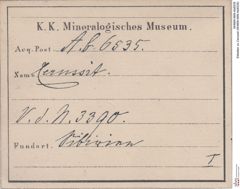 K. K. Mineralogisches Museum.
Acq. Post A.b. 6535.
Name Cerussit.
V. d. N. 3390.
Fundort. Sibirien
I